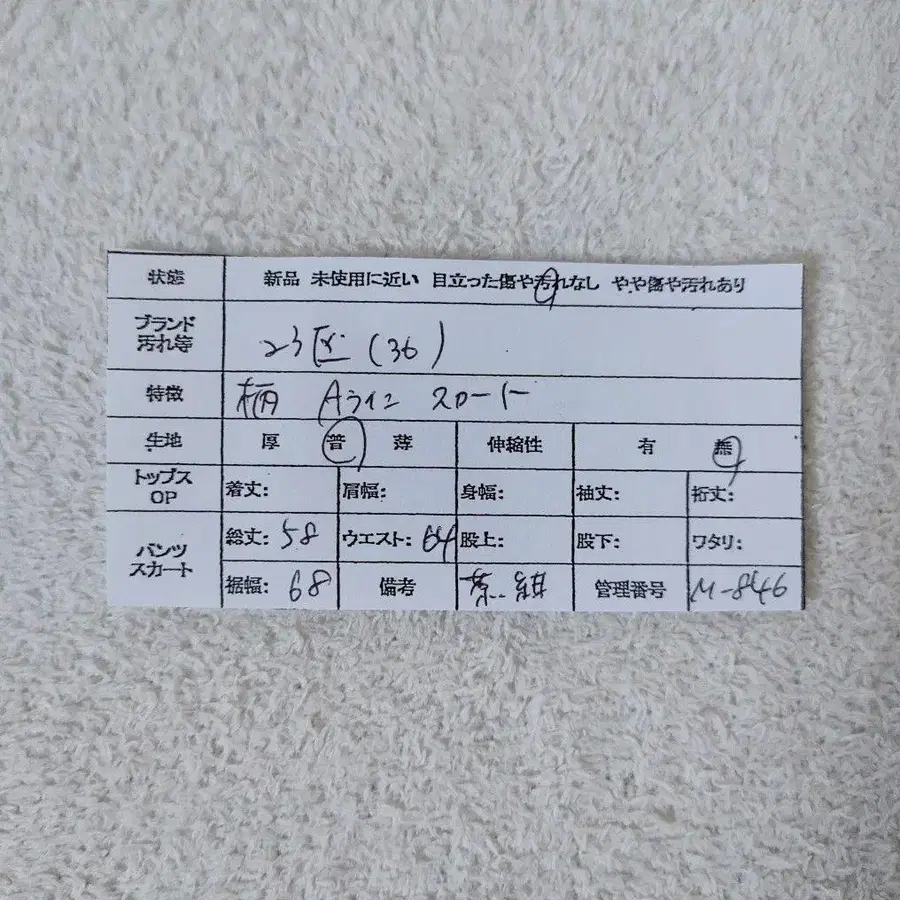 状態 新品 未使用に近い 目立った傷や汚れなし やや傷や汚れあり
ブランド
汚れ等
23区 (36)
特徴 柄 Aライン スカート
生地 厚 普 薄 伸縮性 有 無
トップス
OP
着丈: 肩幅: 身幅: 袖丈: 裄丈:
パンツ
スカート
総丈: 58 ウエスト: 64 股上: 股下: ワタリ:
裾幅: 68 備考 管理番号 M-846